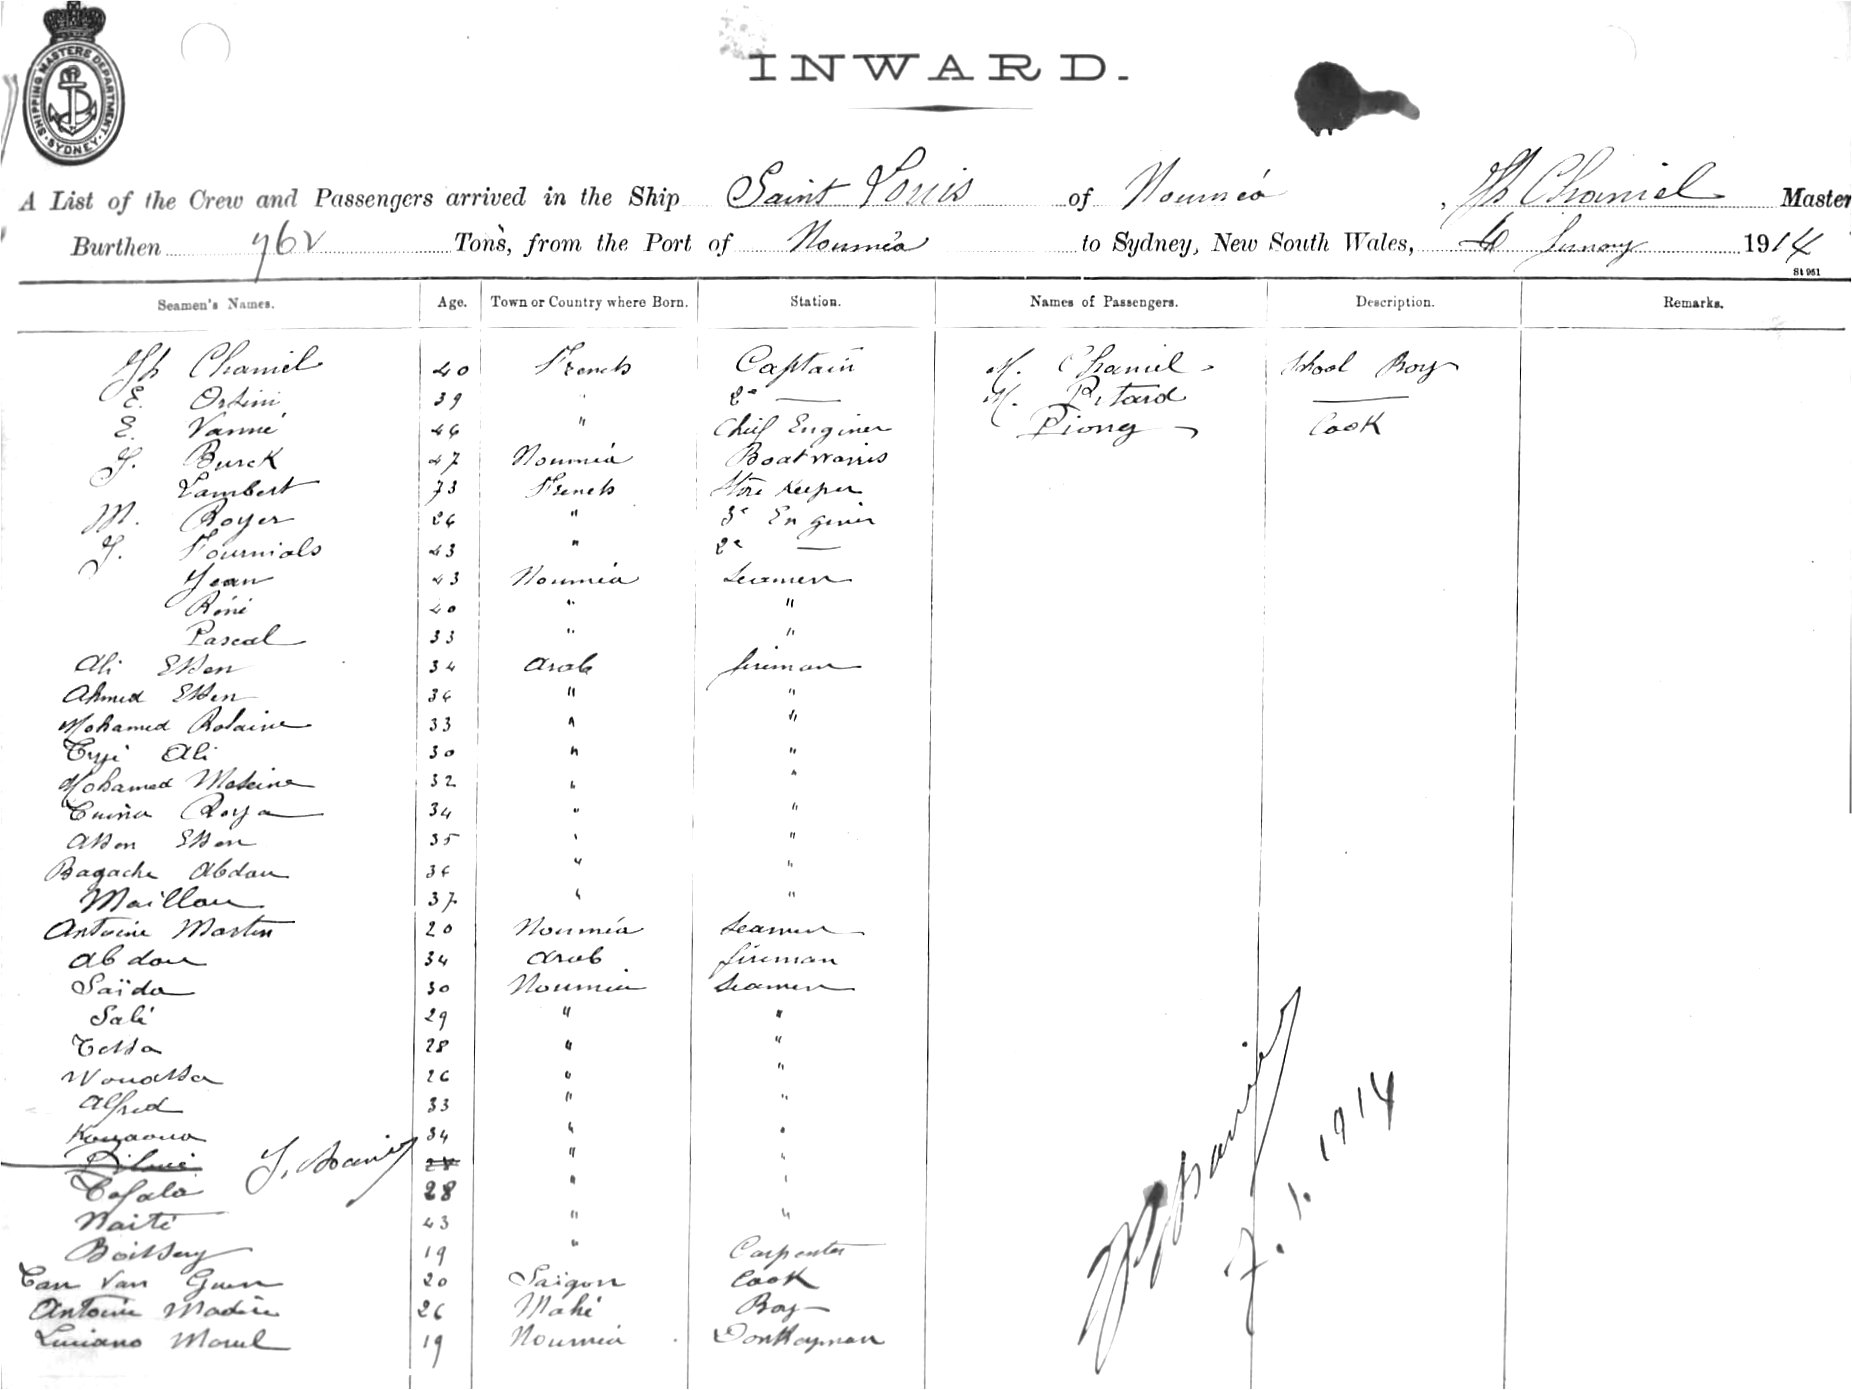 SHIPPING MASTERS DEPARTMENT SYDNEY
INWARD.
A List of the Crew and Passengers arrived in the Ship Saint Louis of Nouméa Chaniel Master
Burthen 762 Tons, from the Port of Nouméa to Sydney, New South Wales, 1914
St 951
Seamen's Names. Age. Town or Country where Born. Station. Names of Passengers. Description. Remarks.
Chaniel 40 French Captain M. Chaniel School Boy
E. Orsini 39 " 2e — M. Pitard —
E. Vanné 46 " Chief Enginer Piong Cook
J. Burck 47 Nouméa
Lambert 73 French Store Keeper
M. Royer 26 " 3e Enginer
J. Fournials 43 " 2e —
Jean 43 Nouméa Seamen
Réné 40 " "
Pascal 33 " "
Ali Essen 34 Arab fireman
Ahmed Essen 36 " "
Mohamed 33 " "
Ali 30 " "
Mohamed 32 " "
34 " "
Assen Essen 35 " "
Bagache Abdou 36 " "
Maillou 37 " "
Antoine Martin 20 Nouméa Seamen
Abdou 34 Arab fireman
Saïdo 30 Nouméa Seamen
Salé 29 " "
28 " "
26 " "
Alfred 33 " "
34 " "
28 " "
28 " "
Waité 43 " "
Boissery 19 " Carpenter
Tan Van 20 Saïgon Cook
Antoine 26 Mahé Boy
Luciano 19 Nouméa Donkeyman
7.1.1914